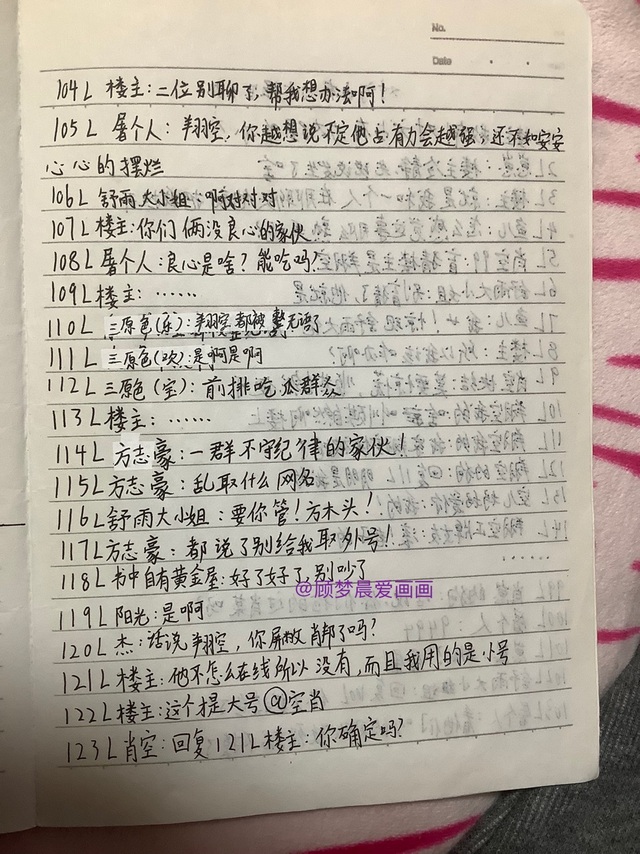 No.
Date
104L 楼主:二位别聊了,帮我想办法啊!
105L 屠个人:翔空,你越想说不定他占有力会越强,还不如安安
心心的摆烂
106L 舒雨大小姐:啊对对对
107L 楼主:你们俩没良心的家伙
108L 屠个人:良心是啥?能吃吗?
109L 楼主:……
110L 三原色(乐):翔空都被整无语了
111L 三原色(欢):是啊是啊
112L 三原色(宝):前排吃瓜群众
113L 楼主:……
114L 方志豪:一群不守纪律的家伙!
115L 方志豪:乱取什么网名
116L 舒雨大小姐:要你管!方木头!
117L 方志豪:都说了别给我取外号!!
118L 书中自有黄金屋:好了好了,别吵了
@顾梦晨爱画画
119L 阳光:是啊
120L 杰:话说翔空,你屏蔽肖邦了吗?
121L 楼主:他不怎么在线所以没有,而且我用的是小号
122L 楼主:这个才是大号@空肖
123L 肖空:回复121L楼主:你确定吗?